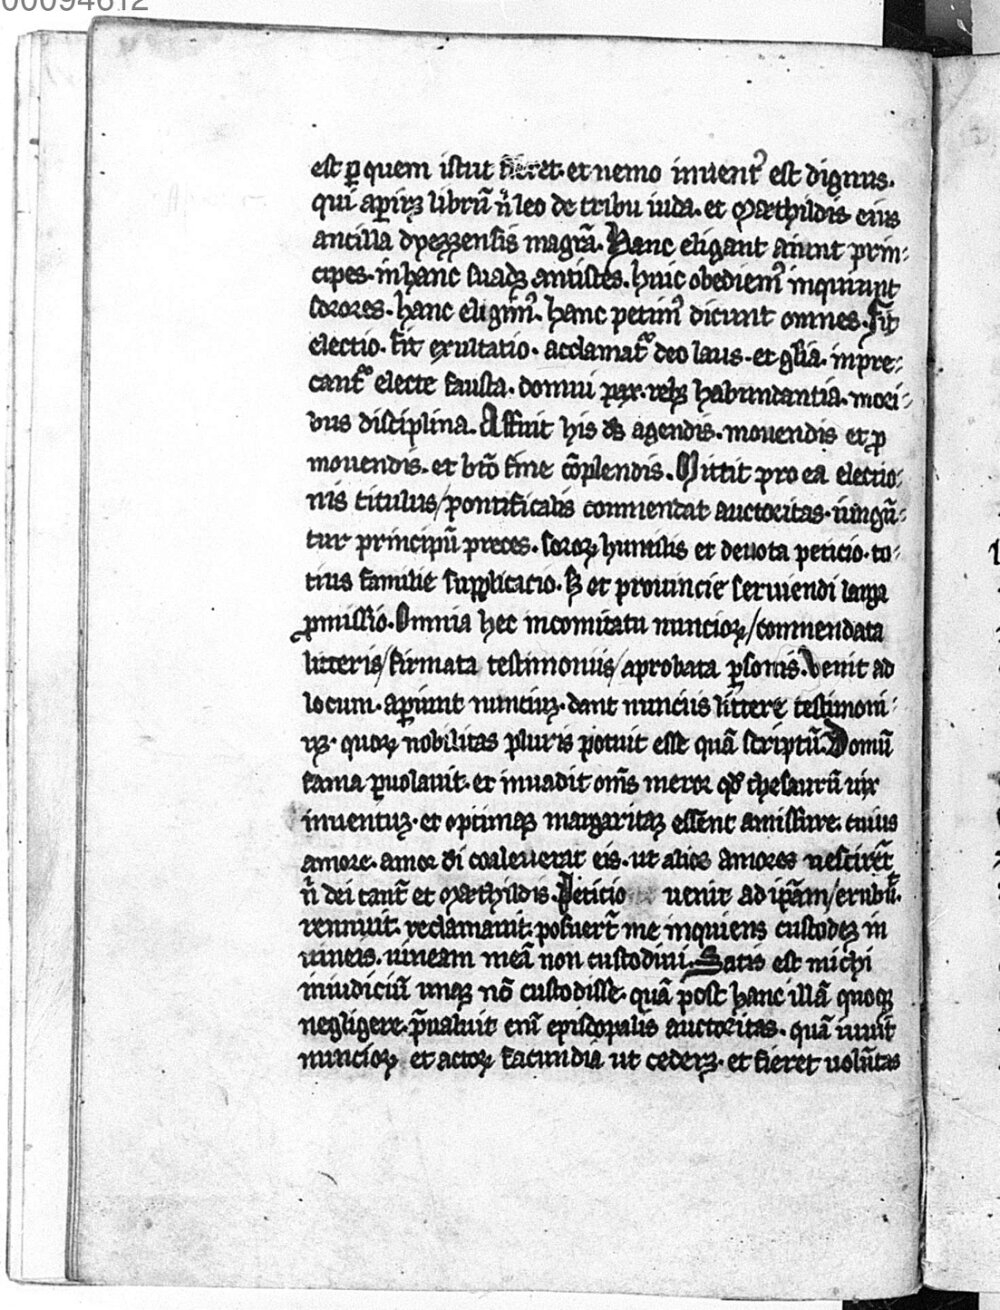 00094612
est ꝑ quem istut fieret· et nemo inuentꝰ est dignus·
qui apirꝫ librū n̄ leo de tribu iuda· et Mæthildis eius
ancilla dyezzensis magrā· Hanc eligant aiunt prin⸗
cipes· in hanc suadꝫ antistes· huic obediemꝰ inquiunt
sorores· hanc eligimꝰ· hanc petimꝰ dicunt omnes· Fit
electio· fit exultatio· acclamatᷣ deo laus· et glīa· inpre⸗
cantᷣ electe fausta· domui pax· rebꝫ habundantia· mori⸗
bus disciplina· Affuit his ds̄ agendis· mouendis et ꝓ
mouendis· et bt̄o fine cōplendis· Mittit pro ea electio⸗
nis titulus/ pontificalis commendat auctoritas· iungū⸗
tur principū preces· soroꝝ humilis et deuota peticio· to⸗
tius familie supplicacio· sꝫ et prouincie seruiendi larga
ꝓmissio· Omnia hec incomitatu nuncioꝝ/ commendata
litteris/ firmata testimoniis/ aprobata ꝑsonis· Venit ad
locum· apiunt nunciuꝫ· dant nunciis littere testimoni⸗
ꝫ· quoꝝ nobilitas pluris potuit esse quā scriptū· Domū
fama ꝑuolauit· et inuadit om̄s meror qd̓ thesaurū uix
inuentuꝫ· et optimaꝫ margaritaꝫ essent amissure· cuius
amore· amor di coaleuerat eis· ut alios amores nescirēt
n̄ dei tant̄ et Mæthildis· Peticio uenit ad ip̄am/ erubu·
rennuit· reclamauit· posuert̄ me inquiens custodeꝫ in
uineis· uineam meā non custodiui· Satis est michi
iniudiciū unaꝫ nō custodisse· quā post hanc illā quoqꝫ
negligere· p̄ualuit eni̅ episcopalis auctoritas· quā iuuit
nuncioꝝ et actoꝝ facundia ut cederꝫ· et fieret uolūtas